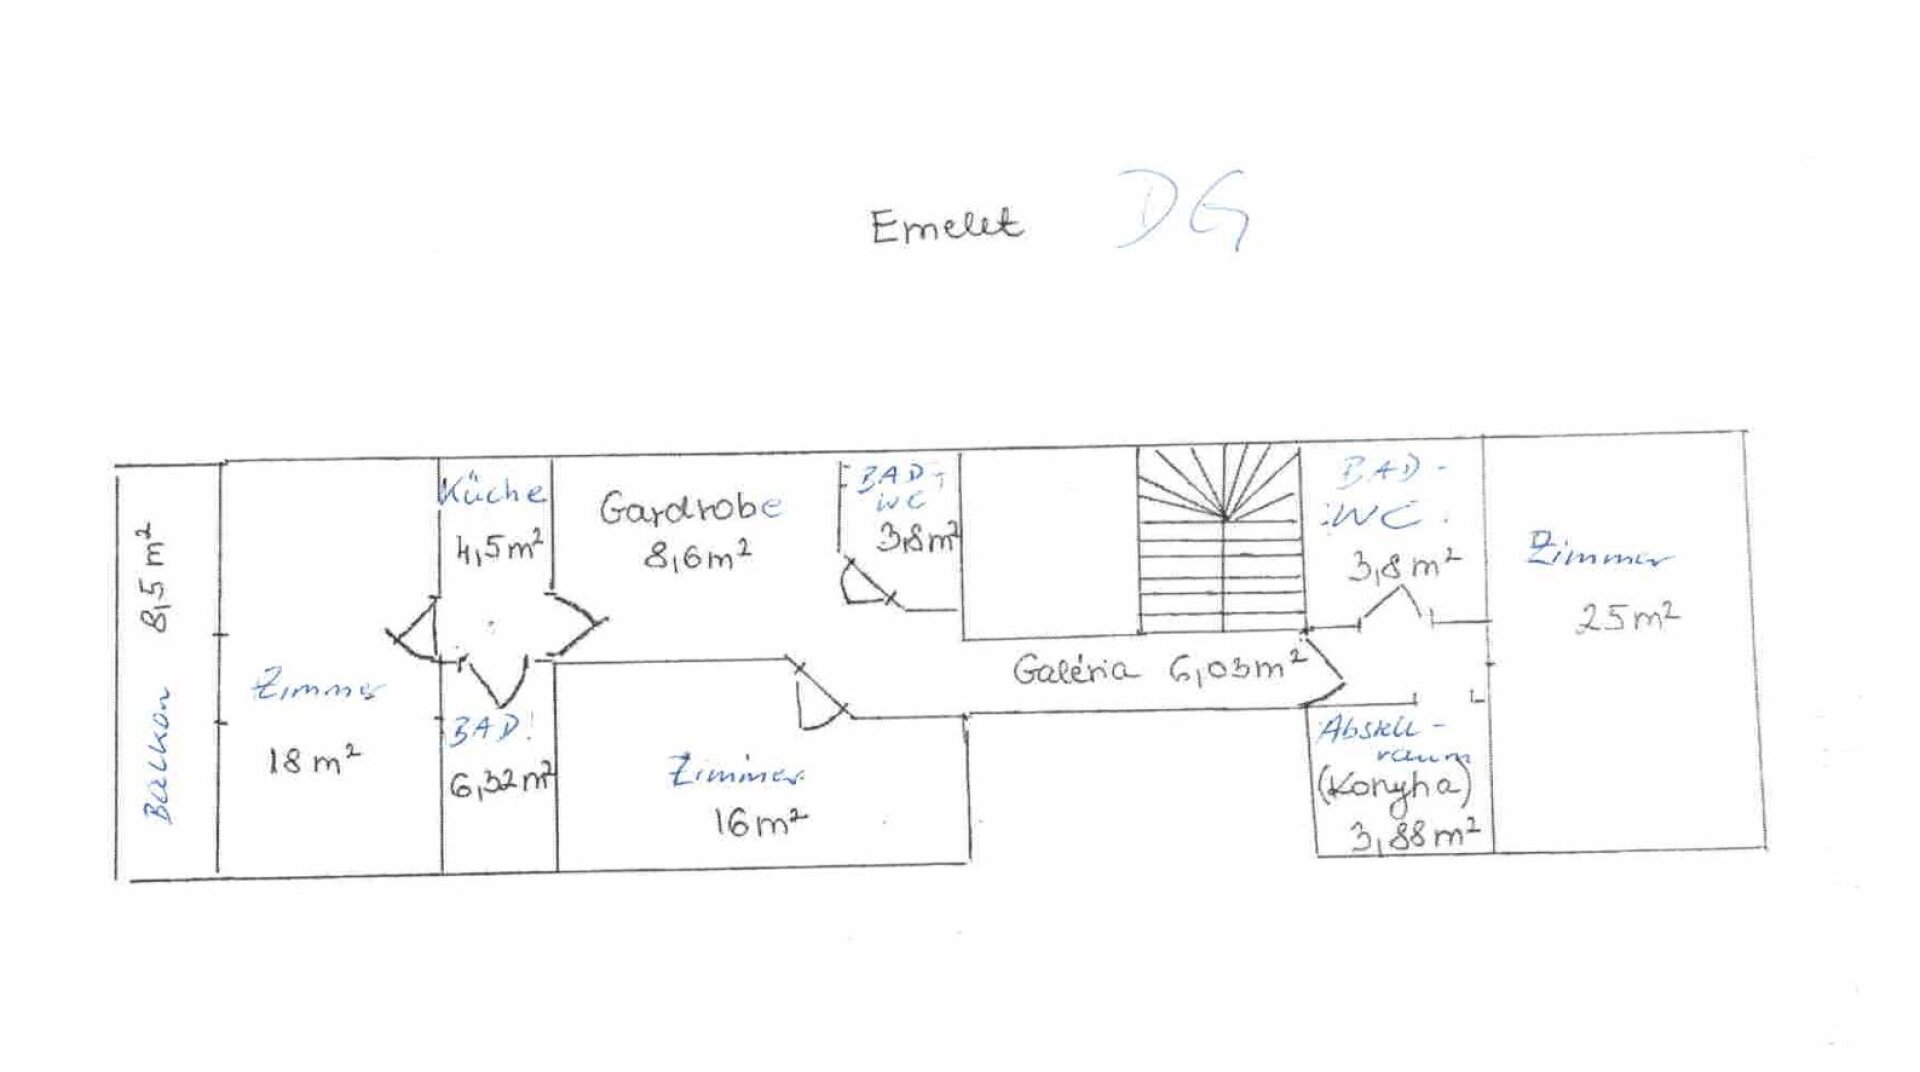 Emelet DG
Balkon 8,5 m²
Zimmer
18 m²
Küche
4,5 m²
BAD!
6,32 m²
Gardrobe
8,6 m²
BAD-
WC
3,8 m²
Zimmer
16 m²
Galéria 6,03 m²
BAD-
WC.
3,8 m²
Abstell-
raum
(Konyha)
3,88 m²
Zimmer
25 m²